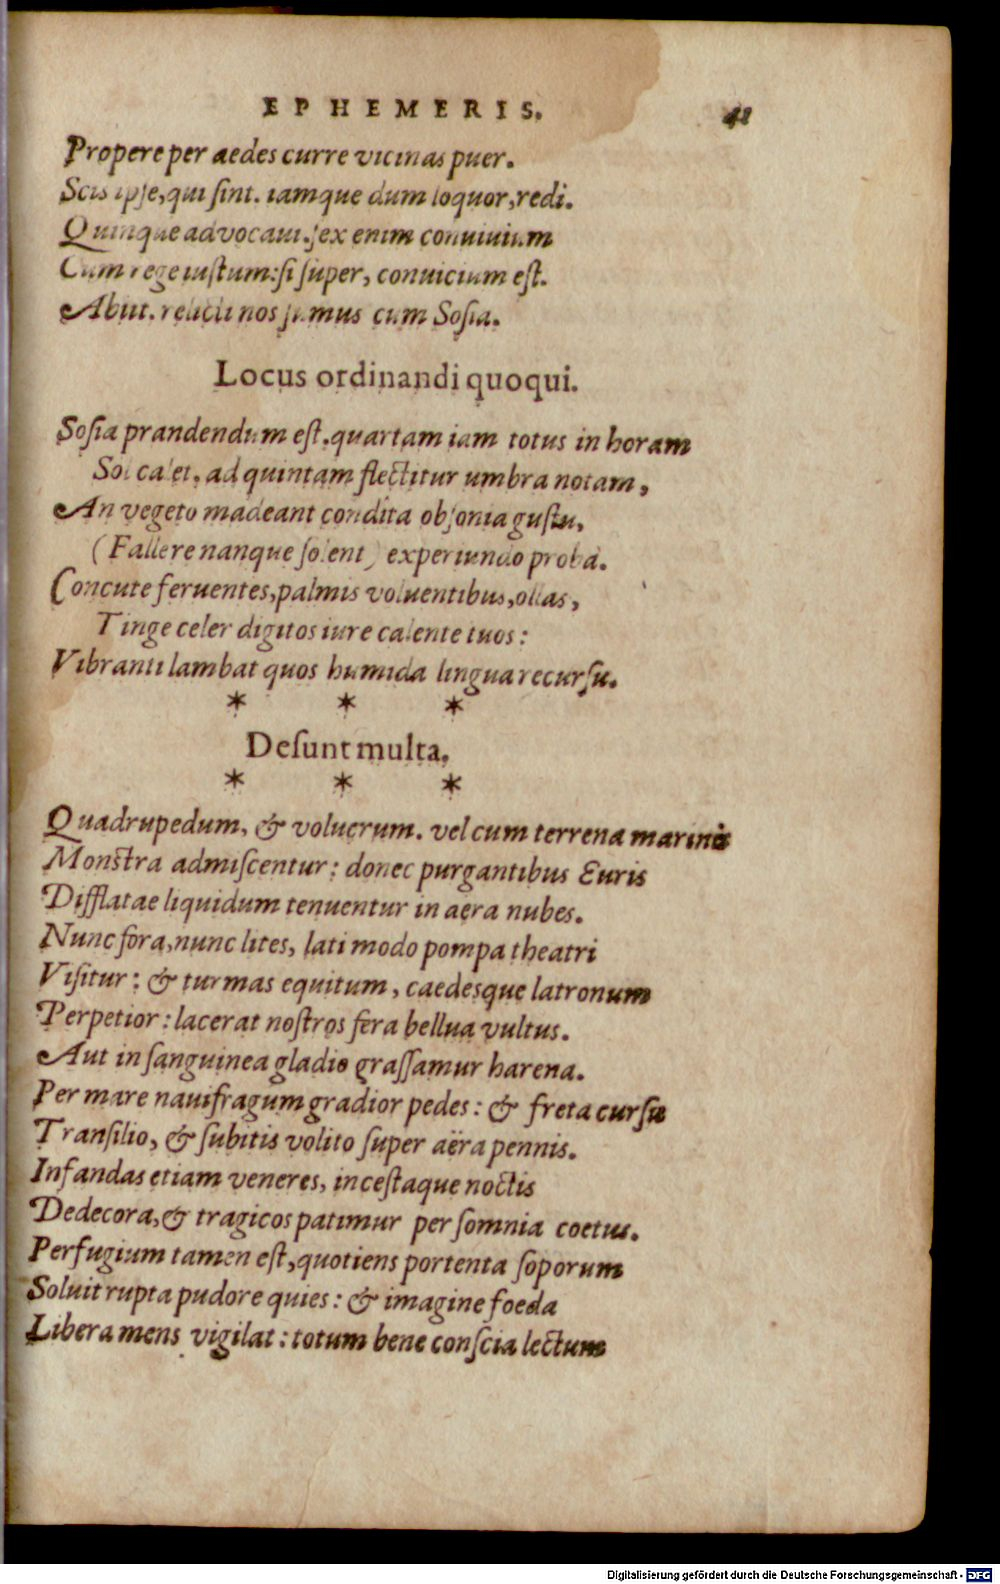 EPHEMERIS. 41
Propere per aedes curre vicinas puer.
Scis ipſe, qui ſint. iamque dum loquor, redi.
Quinque advocaui. ſex enim conuiuium
Cum rege iuſtum: ſi ſuper, conuicium eſt.
Abiit. relicti nos ſumus cum Soſia.
Locus ordinandi quoqui.
Soſia prandendum eſt. quartam iam totus in horam
Sol calet, ad quintam flectitur umbra notam,
An vegeto madeant condita obſonia guſtu,
(Fallere nanque ſolent) experiundo proba.
Concute feruentes, palmis voluentibus, ollas,
Tinge celer digitos iure calente tuos:
Vibranti lambat quos humida lingua recurſu.
* * *
Deſunt multa.
* * *
Quadrupedum, & volucrum. vel cum terrena marinis
Monſtra admiſcentur: donec purgantibus Euris
Difflatae liquidum tenuentur in aera nubes.
Nunc fora, nunc lites, lati modo pompa theatri
Viſitur: & turmas equitum, caedesque latronum
Perpetior: lacerat noſtros fera bellua vultus.
Aut in ſanguinea gladio graſſamur harena.
Per mare navifragum gradior pedes: & freta curſu
Tranſilio, & ſubitis volito ſuper aëra pennis.
Infandas etiam veneres, inceſtaque noctis
Dedecora, & tragicos patimur per ſomnia coetus.
Perfugium tamen eſt, quotiens portenta ſoporum
Soluit rupta pudore quies: & imagine foeda
Libera mens vigilat: totum bene conſcia lectum
Digitalisierung gefördert durch die Deutsche Forschungsgemeinschaft - DFG